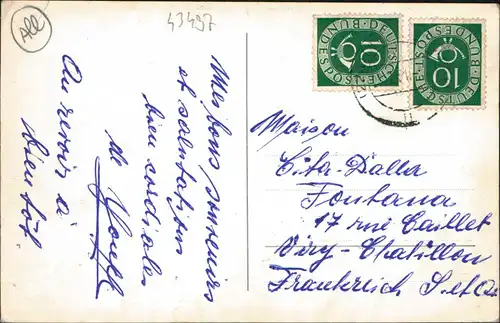 All
43497
Mes bons souvenirs
et salutations
bien cordiales
de
Au revoir à
bientôt
10
DEUTSCHE BUNDESPOST
10
DEUTSCHE BUNDESPOST
Maison
Cita-Dalla
Fontana
17 rue Caillet
Viry-Chatillon
Frankreich S.et O.